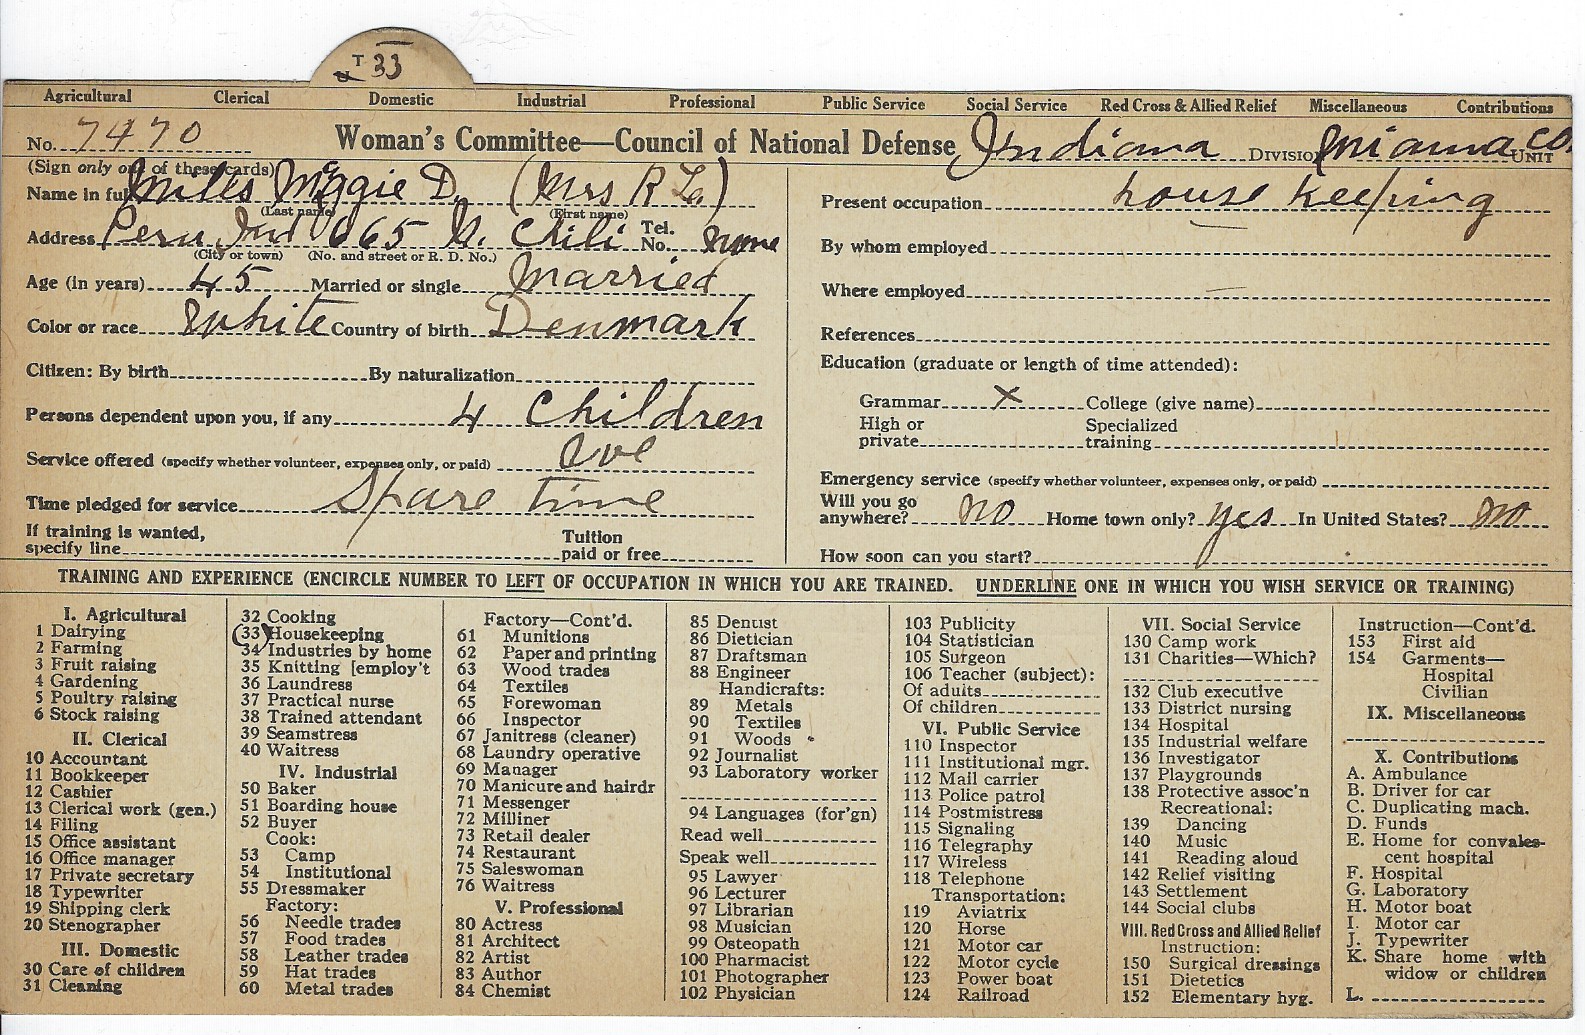 T 33
Agricultural Clerical Domestic Industrial Professional Public Service Social Service Red Cross & Allied Relief Miscellaneous Contributions
No. 7470 Woman's Committee—Council of National Defense Indiana DIVISION Miama Co. UNIT
(Sign only one of these cards)
Name in full Miles Maggie D. (Mrs R L.)
(Last name) (First name)
Address Peru Ind 665 N. Chili Tel. No. none
(City or town) (No. and street or R. D. No.)
Age (in years) 45 Married or single Married
Color or race White Country of birth Denmark
Citizen: By birth By naturalization
Persons dependent upon you, if any 4 Children
Service offered (specify whether volunteer, expenses only, or paid) Vol
Time pledged for service Spare time
If training is wanted,
specify line Tuition paid or free
Present occupation house keeping
By whom employed —
Where employed —
References
Education (graduate or length of time attended):
Grammar X College (give name)
High or private Specialized training
Emergency service (specify whether volunteer, expenses only, or paid)
Will you go anywhere? No Home town only? yes In United States? No
How soon can you start?
TRAINING AND EXPERIENCE (ENCIRCLE NUMBER TO LEFT OF OCCUPATION IN WHICH YOU ARE TRAINED. UNDERLINE ONE IN WHICH YOU WISH SERVICE OR TRAINING)
I. Agricultural
1 Dairying
2 Farming
3 Fruit raising
4 Gardening
5 Poultry raising
6 Stock raising
II. Clerical
10 Accountant
11 Bookkeeper
12 Cashier
13 Clerical work (gen.)
14 Filing
15 Office assistant
16 Office manager
17 Private secretary
18 Typewriter
19 Shipping clerk
20 Stenographer
III. Domestic
30 Care of children
31 Cleaning
32 Cooking
(33) Housekeeping
34 Industries by home
35 Knitting [employ't
36 Laundress
37 Practical nurse
38 Trained attendant
39 Seamstress
40 Waitress
IV. Industrial
50 Baker
51 Boarding house
52 Buyer
Cook:
53 Camp
54 Institutional
55 Dressmaker
Factory:
56 Needle trades
57 Food trades
58 Leather trades
59 Hat trades
60 Metal trades
Factory—Cont'd.
61 Munitions
62 Paper and printing
63 Wood trades
64 Textiles
65 Forewoman
66 Inspector
67 Janitress (cleaner)
68 Laundry operative
69 Manager
70 Manicure and hairdr
71 Messenger
72 Milliner
73 Retail dealer
74 Restaurant
75 Saleswoman
76 Waitress
V. Professional
80 Actress
81 Architect
82 Artist
83 Author
84 Chemist
85 Dentist
86 Dietician
87 Draftsman
88 Engineer
Handicrafts:
89 Metals
90 Textiles
91 Woods
92 Journalist
93 Laboratory worker
94 Languages (for'gn)
Read well
Speak well
95 Lawyer
96 Lecturer
97 Librarian
98 Musician
99 Osteopath
100 Pharmacist
101 Photographer
102 Physician
103 Publicity
104 Statistician
105 Surgeon
106 Teacher (subject):
Of adults
Of children
VI. Public Service
110 Inspector
111 Institutional mgr.
112 Mail carrier
113 Police patrol
114 Postmistress
115 Signaling
116 Telegraphy
117 Wireless
118 Telephone
Transportation:
119 Aviatrix
120 Horse
121 Motor car
122 Motor cycle
123 Power boat
124 Railroad
VII. Social Service
130 Camp work
131 Charities—Which?
132 Club executive
133 District nursing
134 Hospital
135 Industrial welfare
136 Investigator
137 Playgrounds
138 Protective assoc'n
Recreational:
139 Dancing
140 Music
141 Reading aloud
142 Relief visiting
143 Settlement
144 Social clubs
VIII. Red Cross and Allied Relief
Instruction:
150 Surgical dressings
151 Dietetics
152 Elementary hyg.
Instruction—Cont'd.
153 First aid
154 Garments—
Hospital
Civilian
IX. Miscellaneous
X. Contributions
A. Ambulance
B. Driver for car
C. Duplicating mach.
D. Funds
E. Home for convales-
cent hospital
F. Hospital
G. Laboratory
H. Motor boat
I. Motor car
J. Typewriter
K. Share home with
widow or children
L.